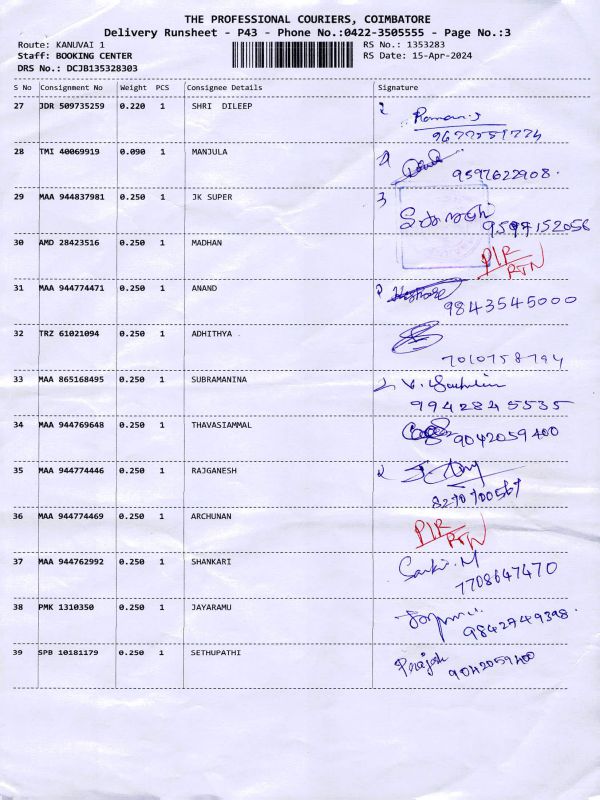 THE PROFESSIONAL COURIERS, COIMBATORE
Delivery Runsheet - P43 - Phone No.:0422-3505555 - Page No.:3
Route: KANUVAI 1 RS No.: 1353283
Staff: BOOKING CENTER RS Date: 15-Apr-2024
DRS No.: DCJB135328303
S No Consignment No Weight PCS Consignee Details Signature
27 JDR 509735259 0.220 1 SHRI DILEEP
28 TMI 40069919 0.090 1 MANJULA
9597622908.
29 MAA 944837981 0.250 1 JK SUPER
30 AMD 28423516 0.250 1 MADHAN
P/R
RTN
31 MAA 944774471 0.250 1 ANAND
9843545000
32 TRZ 61021094 0.250 1 ADHITHYA .
7010758794
33 MAA 865168495 0.250 1 SUBRAMANINA
9942845535
34 MAA 944769648 0.250 1 THAVASIAMMAL
9042059400
35 MAA 944774446 0.250 1 RAJGANESH
8270700567
36 MAA 944774469 0.250 1 ARCHUNAN
P/R
RTN
37 MAA 944762992 0.250 1 SHANKARI
7708647470
38 PMK 1310350 0.250 1 JAYARAMU
9842749398.
39 SPB 10181179 0.250 1 SETHUPATHI
Prajosh
9042059400